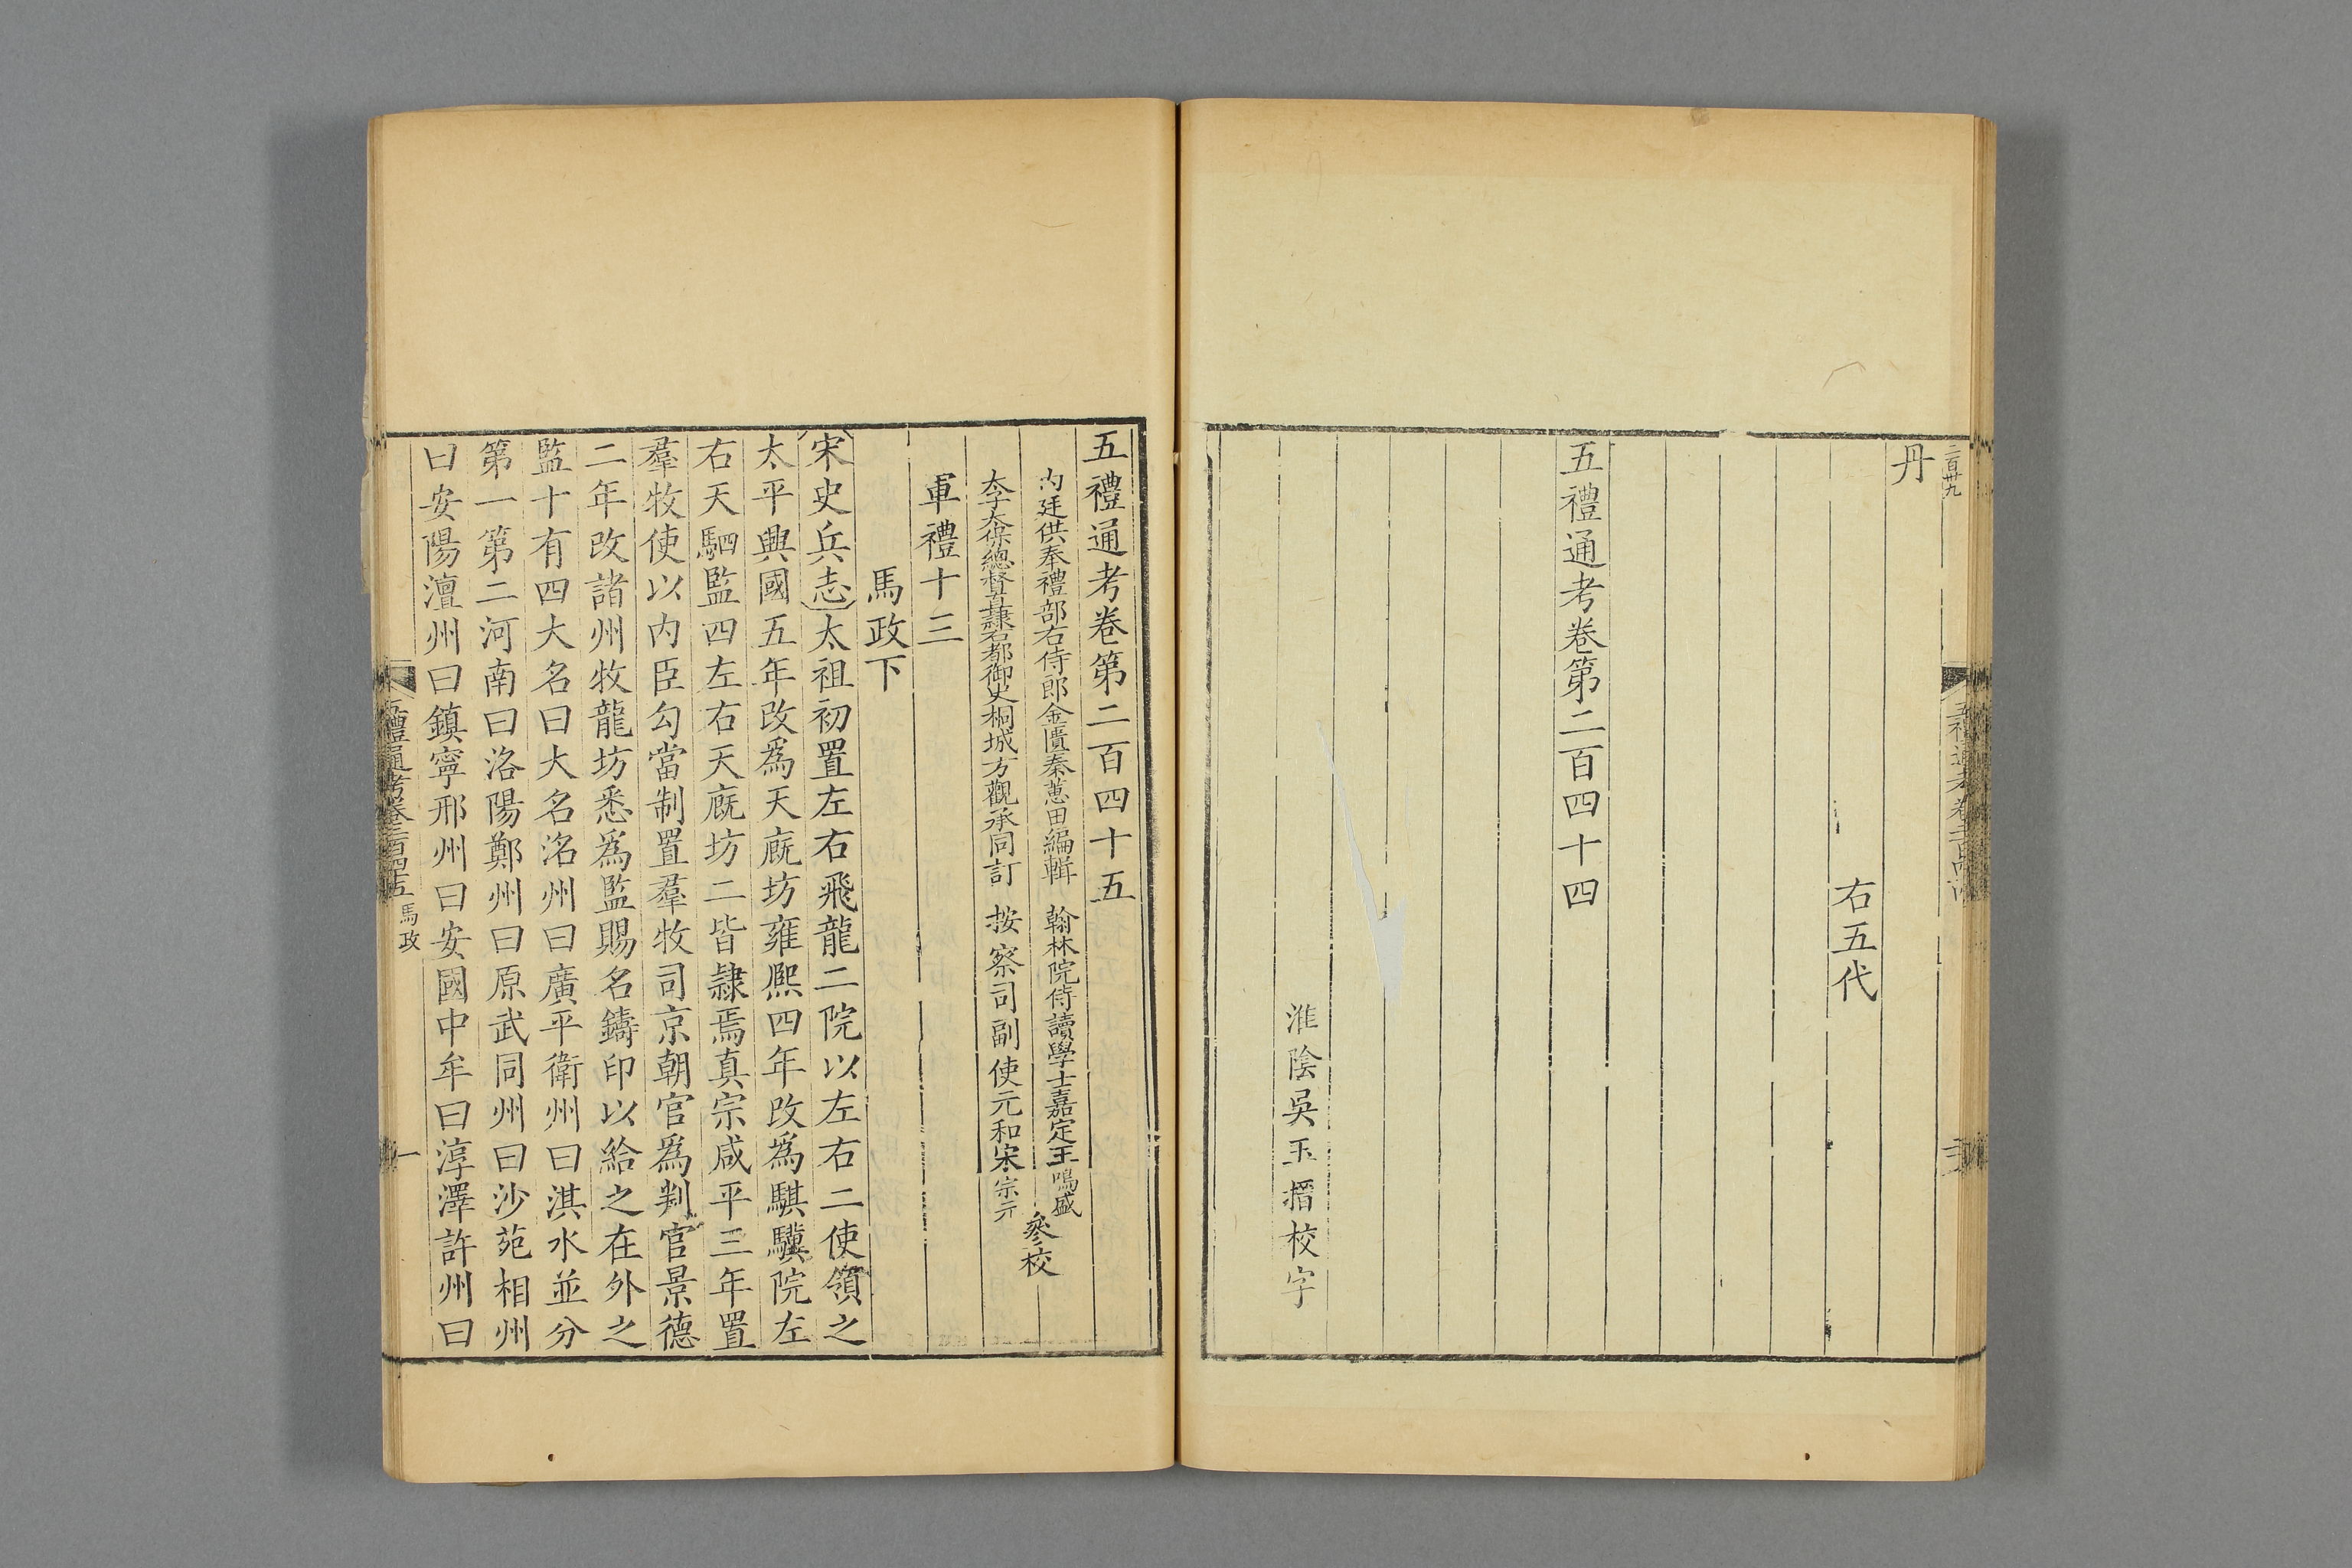 二百卅九
丹
右五代
五禮通考卷第二百四十四
淮陰吳玉搢校字
五禮通考卷第二百四十五
內廷供奉禮部右侍郎金匱秦蕙田編輯
翰林院侍讀學士嘉定王鳴盛
太子太保總督直隸右都御史桐城方觀承同訂
按察司副使元和宋宗元
參校
軍禮十三
馬政下
宋史兵志太祖初置左右飛龍二院以左右二使領之
太平興國五年改爲天廐坊雍熙四年改爲騏驥院左
右天駟監四左右天廐坊二皆隸焉真宗咸平三年置
羣牧使以內臣勾當制置羣牧司京朝官爲判官景德
二年改諸州牧龍坊悉爲監賜名鑄印以給之在外之
監十有四大名曰大名洺州曰廣平衛州曰淇水並分
第一第二河南曰洛陽鄭州曰原武同州曰沙苑相州
曰安陽澶州曰鎮寧邢州曰安國中牟曰淳澤許州曰
禮通考卷二百四十五
馬政
一